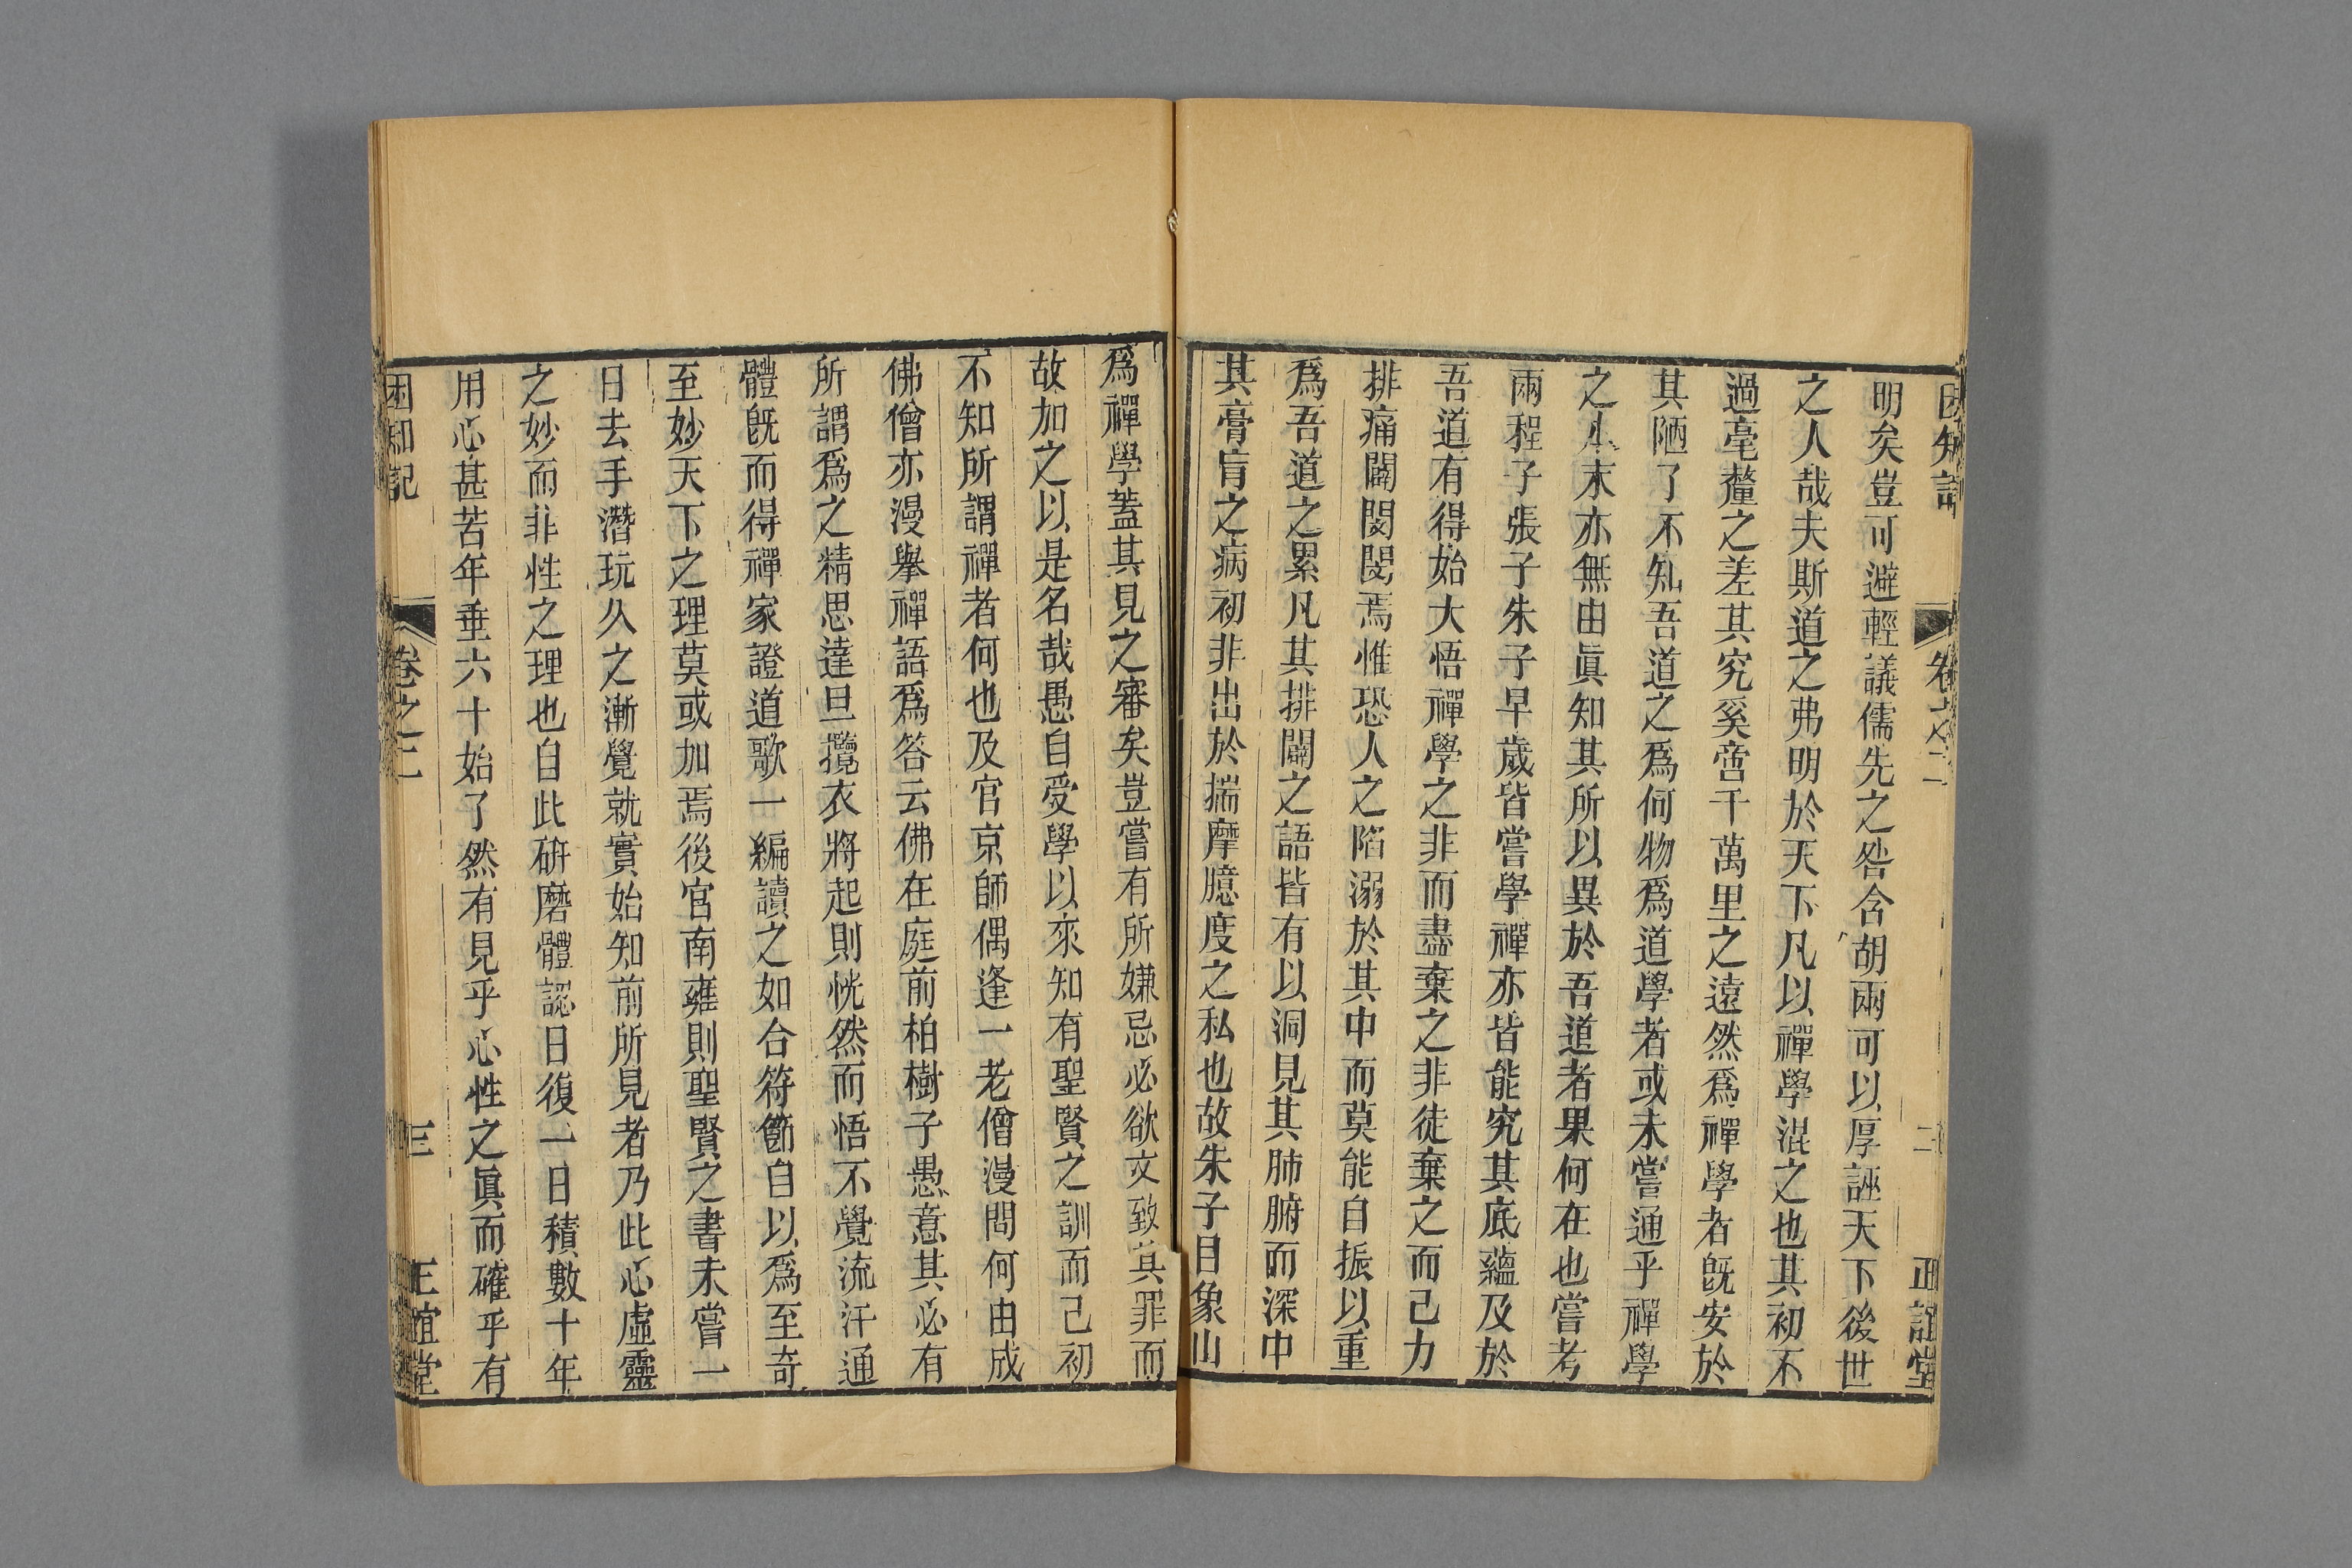 困知記
卷之二
二
正誼堂
明矣豈可避輕議儒先之咎含胡兩可以厚誣天下後世
之人哉夫斯道之弗明於天下凡以禪學混之也其初不
過毫釐之差其究奚啻千萬里之遠然爲禪學者旣安於
其陋了不知吾道之爲何物爲道學者或未嘗通乎禪學
之本末亦無由眞知其所以異於吾道者果何在也嘗考
兩程子張子朱子早歲皆嘗學禪亦皆能究其底蘊及於
吾道有得始大悟禪學之非而盡棄之非徒棄之而己力
排痛闢閔閔焉惟恐人之陷溺於其中而莫能自振以重
爲吾道之累凡其排闢之語皆有以洞見其肺腑而深中
其膏肓之病初非出於揣摩臆度之私也故朱子目象山
爲禪學蓋其見之審矣豈嘗有所嫌忌必欲文致其罪而
故加之以是名哉愚自受學以來知有聖賢之訓而己初
不知所謂禪者何也及官京師偶逢一老僧漫問何由成
佛僧亦漫舉禪語爲答云佛在庭前柏樹子愚意其必有
所謂爲之精思達旦攬衣將起則恍然而悟不覺流汗通
體旣而得禪家證道歌一編讀之如合符節自以爲至奇
至妙天下之理莫或加焉後官南雍則聖賢之書未嘗一
日去手潛玩久之漸覺就實始知前所見者乃此心虛靈
之妙而非性之理也自此硏磨體認日復一日積數十年
用心甚苦年垂六十始了然有見乎心性之眞而確乎有
困知記
卷之二
三
正誼堂